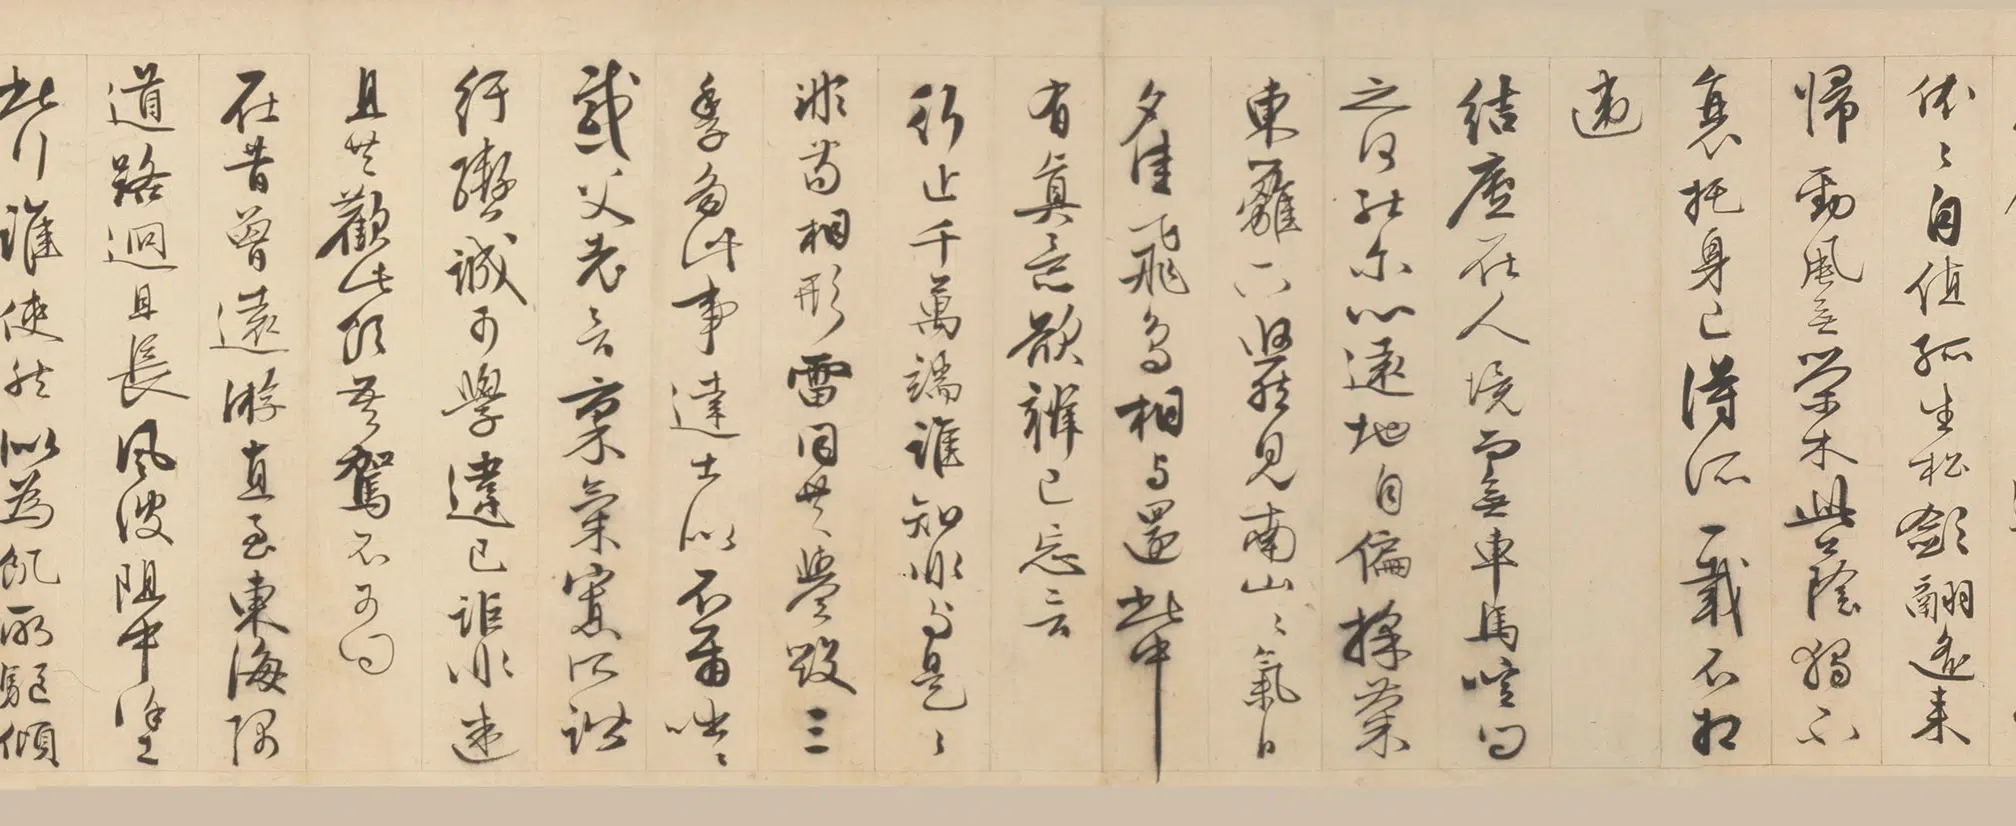 依〻自值孤生松歛翮遥来
歸勁風無榮木此蔭獨不
衰托身已得所千載不相
違
結廬在人境而無車馬喧問
之何能尔心遠地自偏採菊
東籬下悠然見南山〻氣日
夕佳飛鳥相与還此中
有真意欲辨已忘言
行止千萬端誰知非与是〻
非苟相形雷同共譽毀三
季多此事達士似不爾咄〻
父老言稟氣寡所諧
紆轡誠可學違已詎非迷
且共歡此飲吾駕不可回
在昔曾遠游直至東海隅
道路迥且長風波阻中塗
此行誰使然似為飢所驅傾